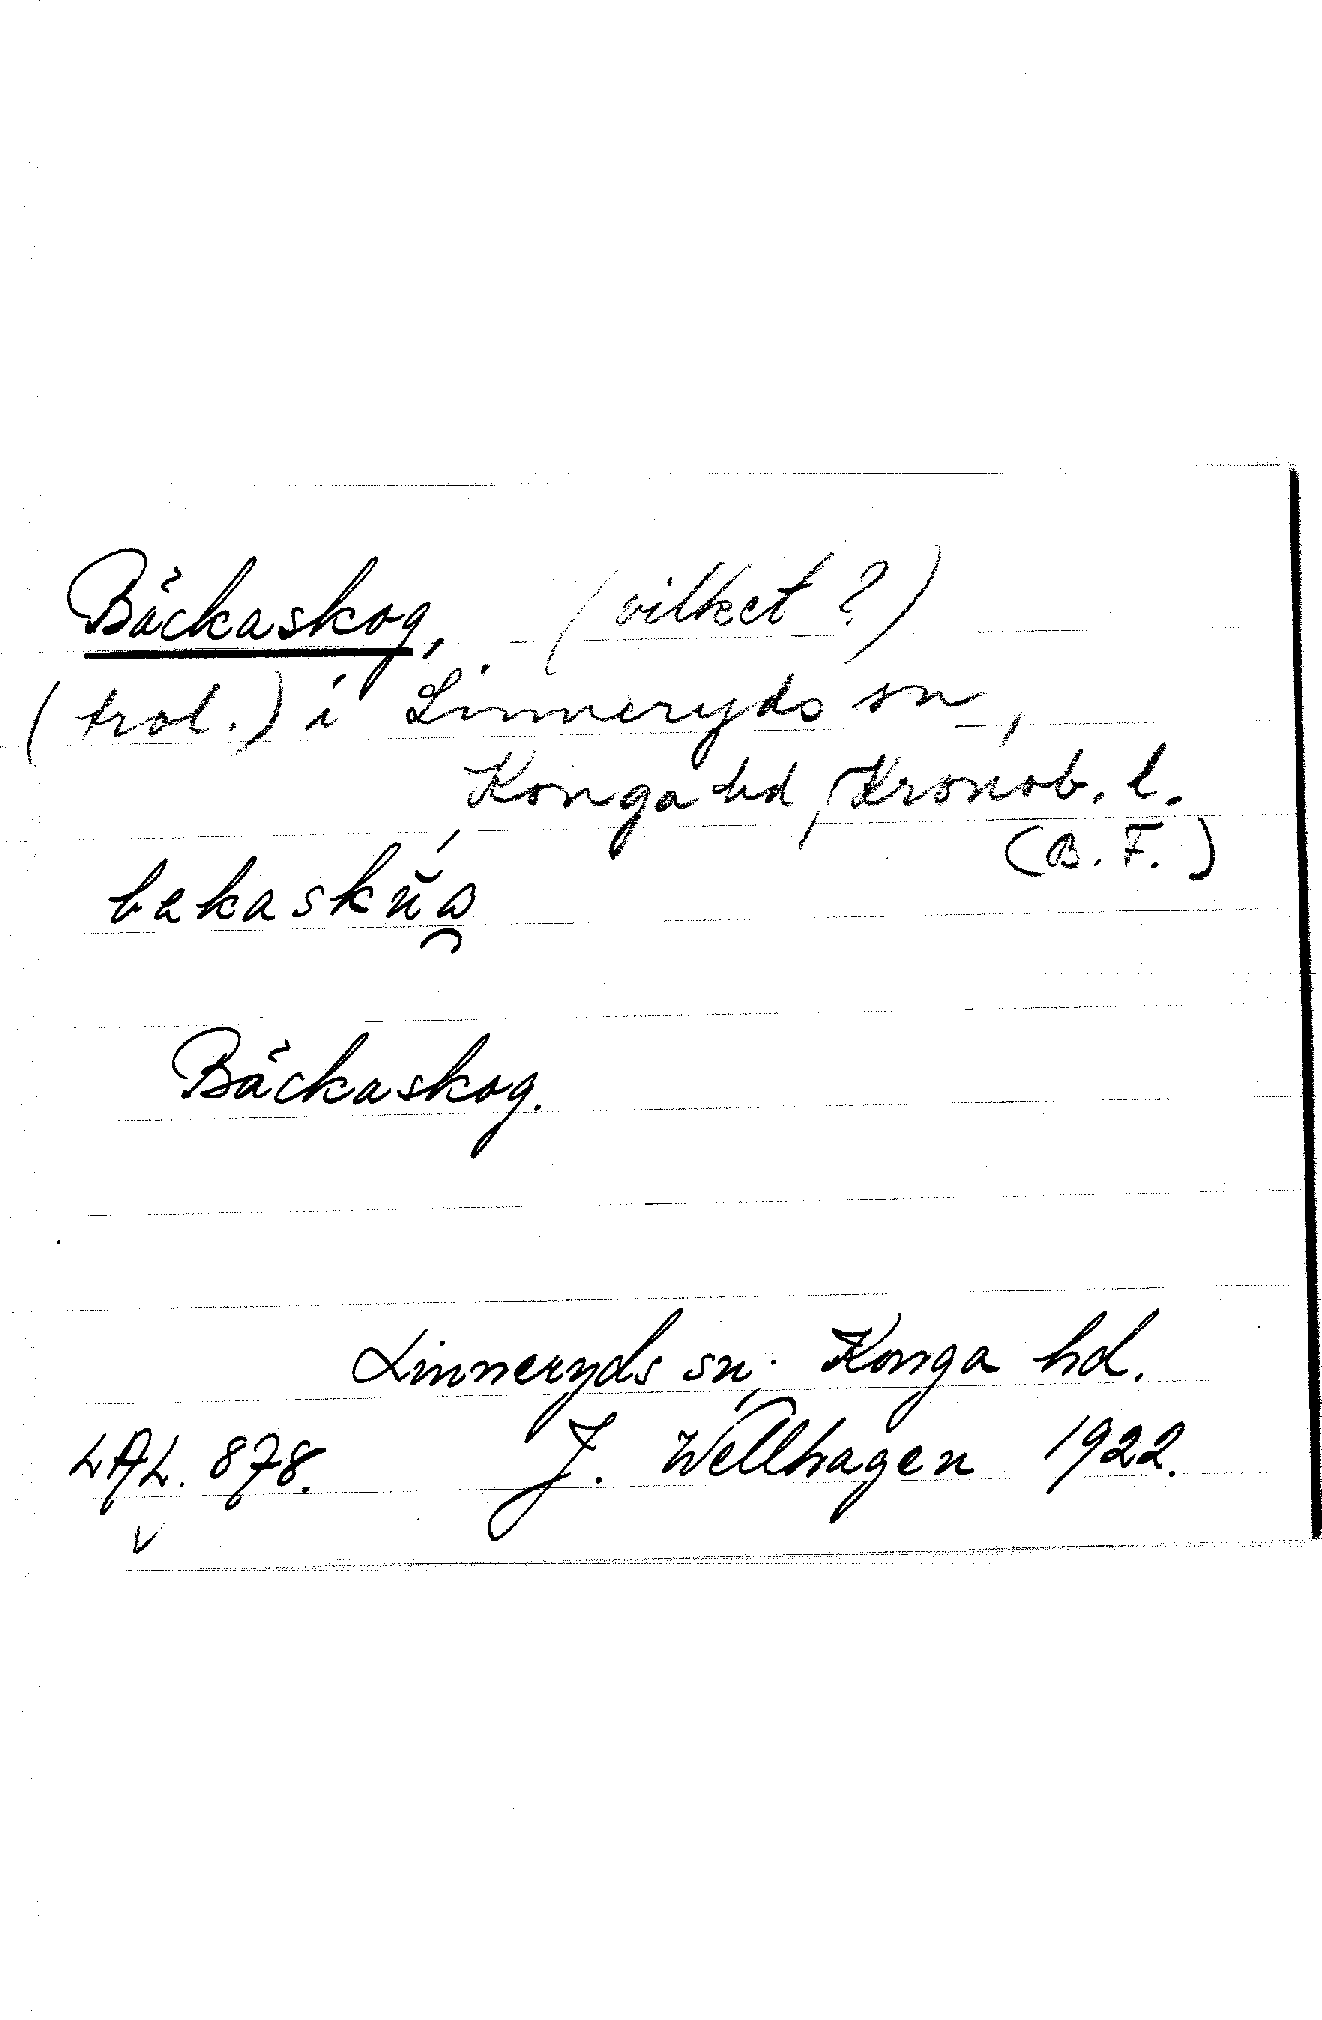 Bäckaskog, (vilket?)
(trol.) i Linneryds sn,
Konga hd, Kronob. l.
(B. F.)
Bäckaskog.
Linneryds sn. Konga hd.
LAL. 878. J. Wellhagen 1922.